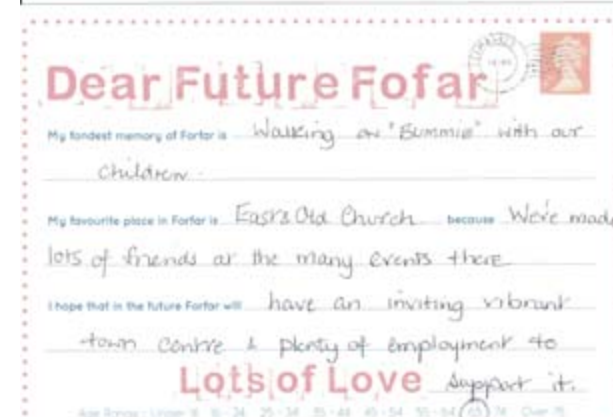 Dear Future Fofar
My fondest memory of Forfar is Walking on "Bummie" with our
children.
My favourite place in Forfar is East & Old Church because We've made
lots of friends at the many events there
I hope that in the future Forfar will have an inviting vibrant
town centre & plenty of employment to
Lots of Love support it.
Age Range - Under 16 16 - 24 25 - 34 35 - 44 45 - 54 55 - 64 65 - 74 Over 75